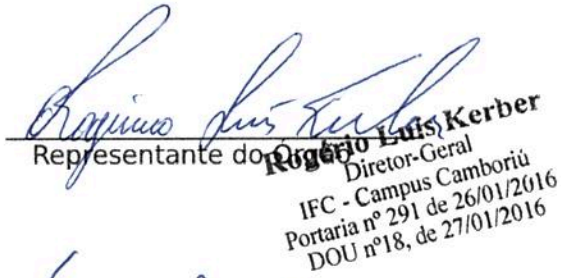 Rogério Luís Kerber
Representante do Órgão
Rogério Luís Kerber
Diretor-Geral
IFC - Campus Camboriú
Portaria nº 291 de 26/01/2016
DOU nº18, de 27/01/2016